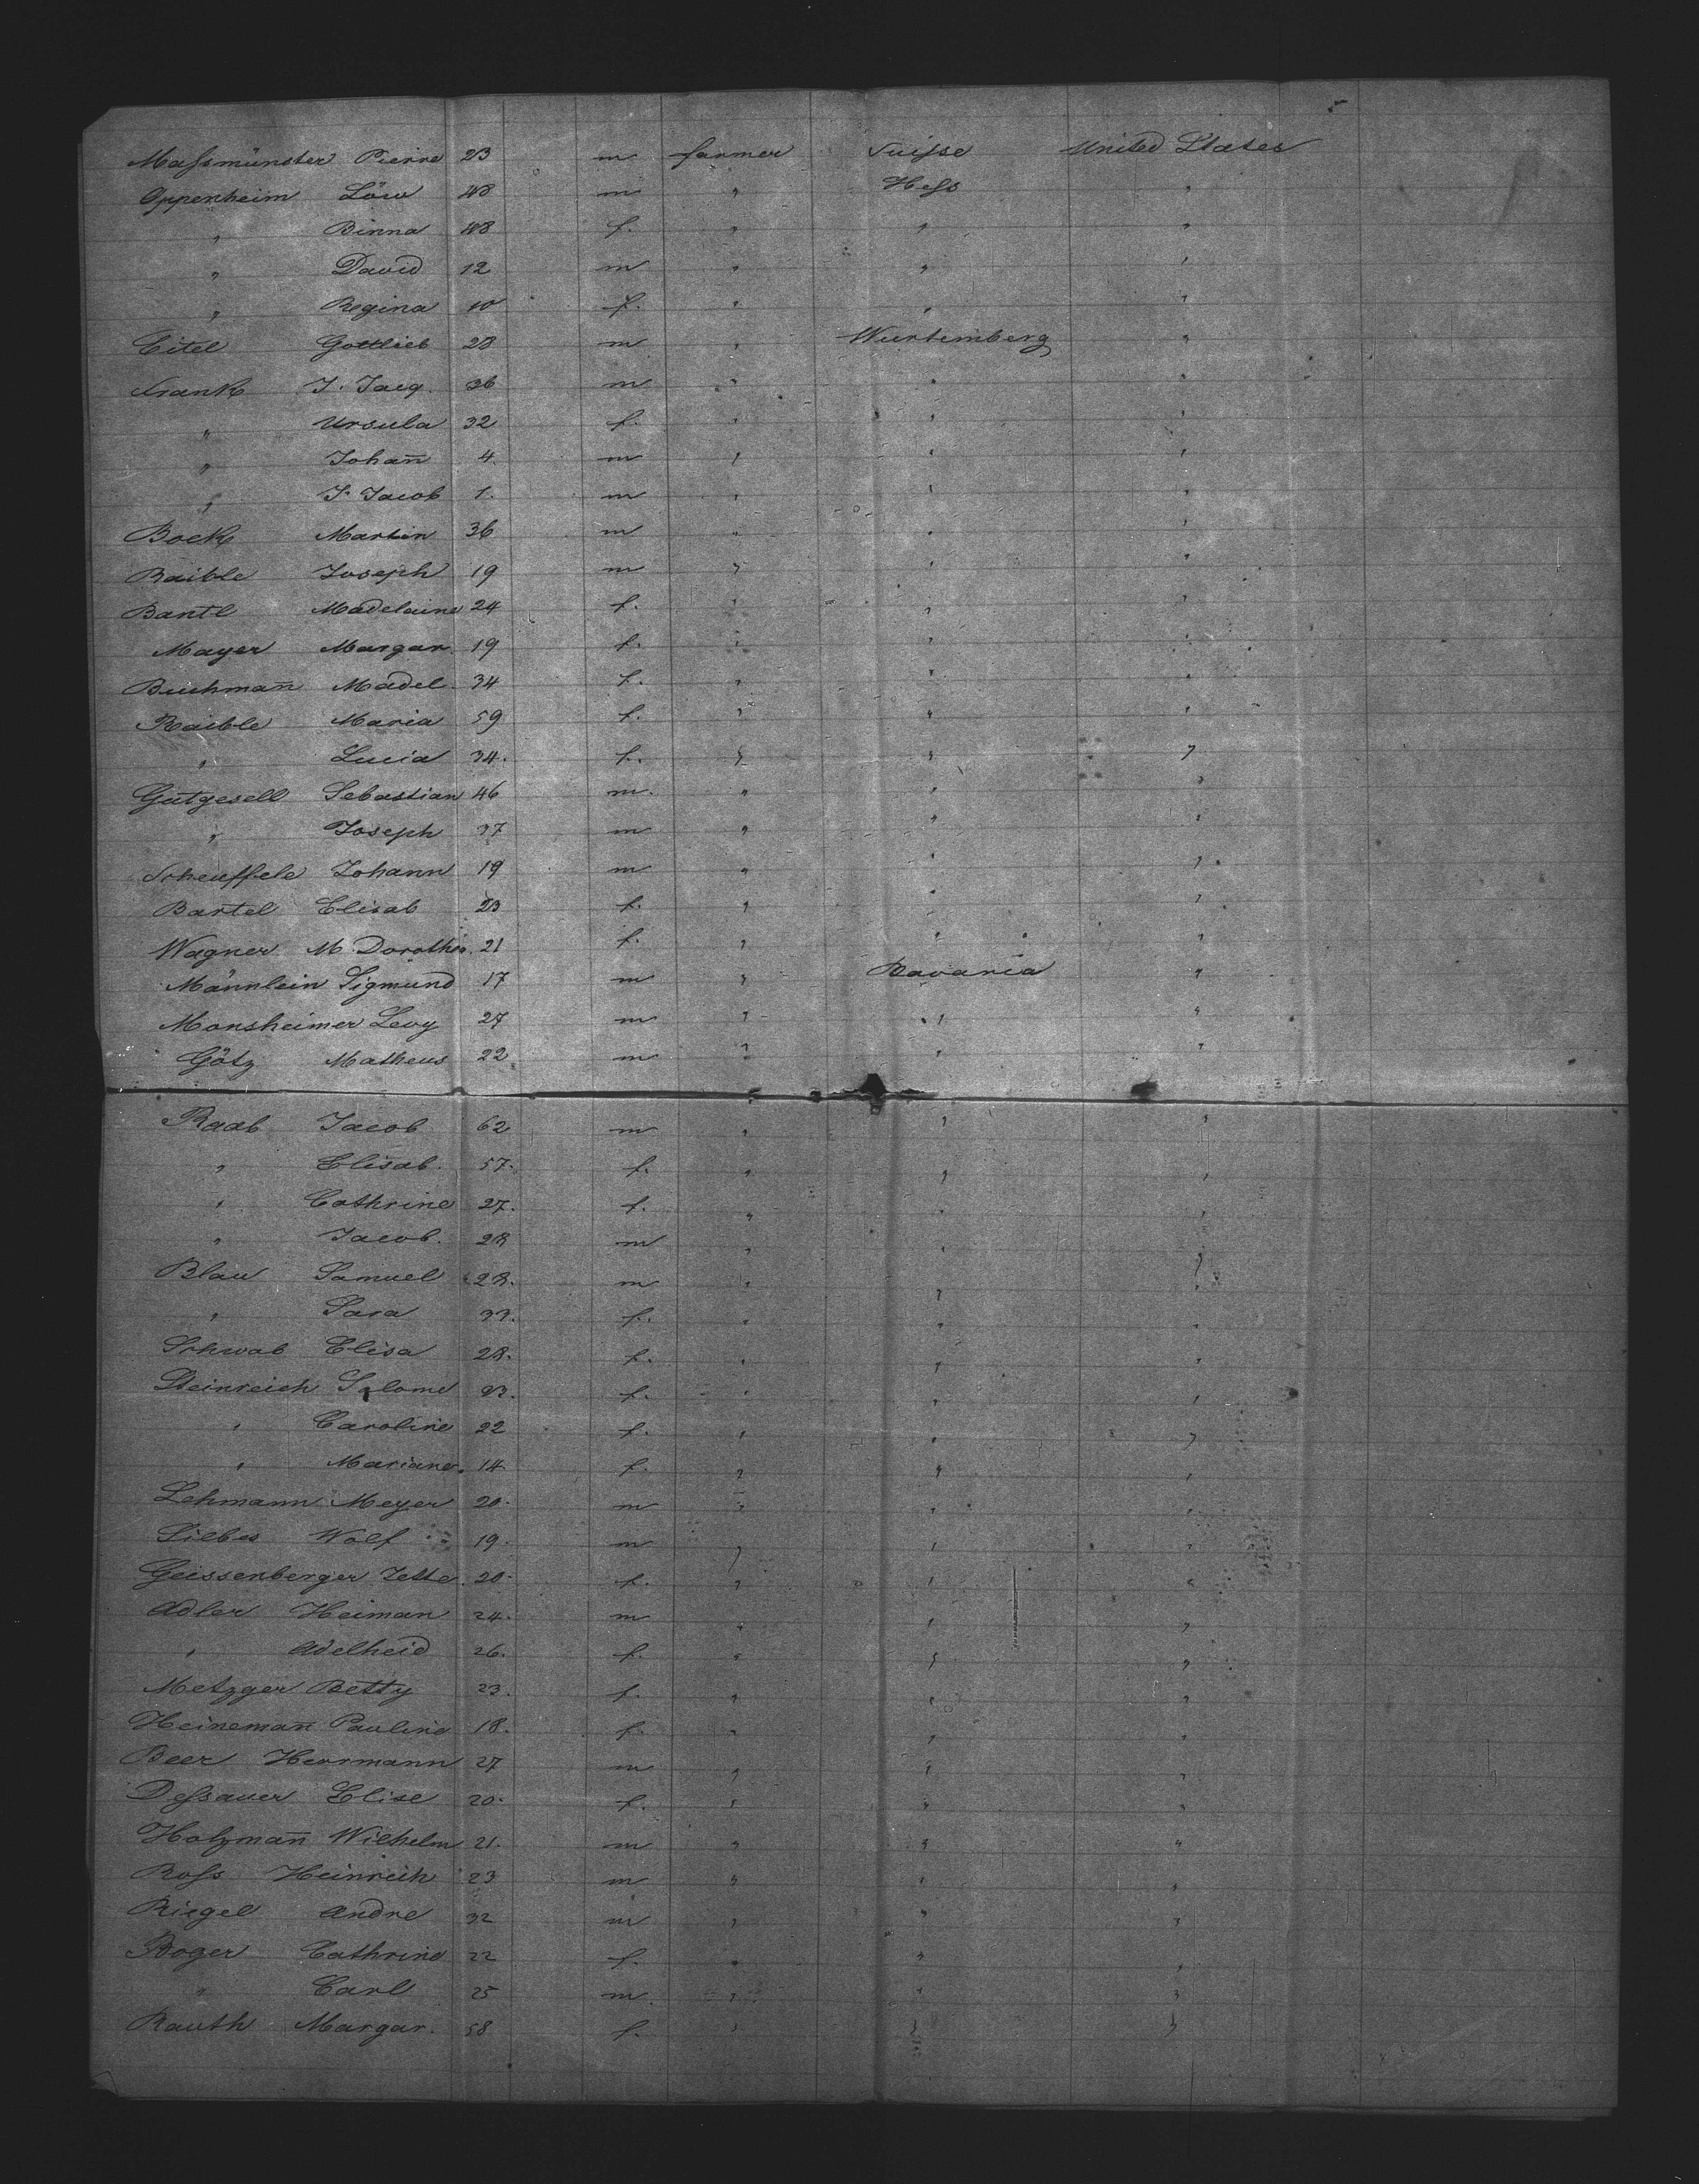 Maſsmünster Pierre 23 m farmer Suiſse United States
Oppenheim Löw 48 m " Heſs "
" Binna 48 f. " " "
" David 12 m " " "
" Regina 10 f. " " "
Eitel Gottlieb 28 m " Wurtemberg "
Frank J. Jacq. 36 m " " "
" Ursula 32 f. " " "
" Johan̄ 4. m " " "
" J. Jacob 1. m " " "
Bock Martin 36 m " " "
Raible Joseph 19 m " " "
Bantl Madelaine 24 f. " " "
Mayer Margar. 19 f. " " "
Buchman̄ Madel. 34 f. " " "
Raible Maria 59 f. " " "
" Lucia 34. f. " " "
Gutgesell Sebastian 46 m. " " "
" Joseph 37 m " " "
Scheuffele Johann 19 m " " "
Bartel Elisab 23 f. " " "
Wagner M. Dorothea. 21 f. " " "
Männlein Sigmund 17 m " Bavaria "
Monsheimer Levy 27 m " " "
Götz Matheus 22 m " " "
Raab Jacob 62 m " " "
" Elisab. 57. f. " " "
" Cathrine 27. f. " " "
" Jacob. 28 m " " "
Blau Samuel 28. m " " "
" Sara 33. f. " " "
Schwab Elisa 28. f. " " "
Steinreich Salome 23. f. " " "
" Caroline 22 f. " " "
" Mariane. 14 f. " " "
Lehmann Meyer 20. m " " "
Wolf 19. m " " "
Geissenberger Jette. 20. f. " " "
Adler Heiman 24. m " " "
" Adelheid 26. f. " " "
Metzger Betty 23. f. " " "
Heineman̄ Pauline 18. f. " " "
Beer Herrmann 27 m " " "
Deſsauer Elise 20. f. " " "
Holzman̄ Wilhelm 21. m " " "
Roſs Heinrich 23 m " " "
Riegel Andre 32 m " " "
Boger Cathrine 22 f. " " "
" Carl 25 m. " " "
Rauth Margar. 58 f. " " "